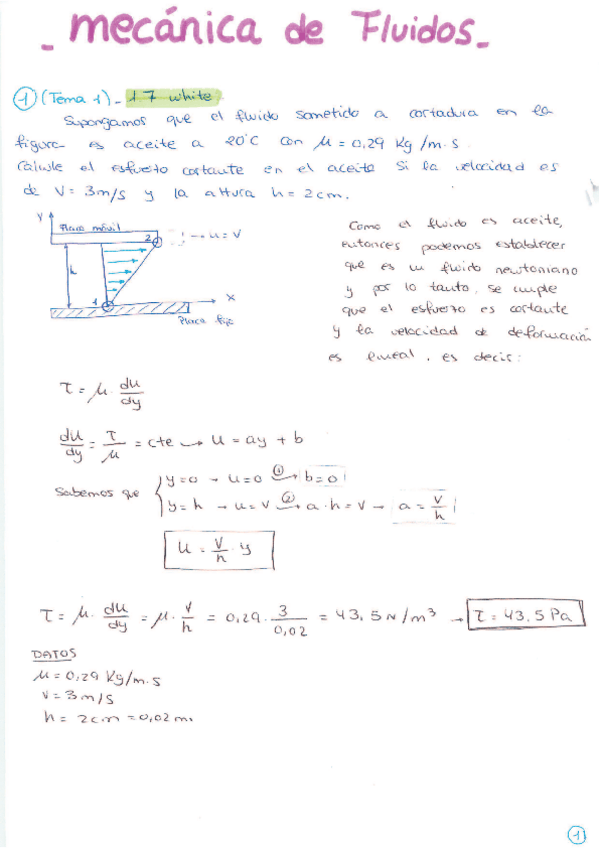 - mecánica de Fluidos -
① (Tema 1) - 1.7 white
Supongamos que el fluido sometido a cortadura en la
figura es aceite a 20°C con μ = 0,29 Kg/m·s.
Calcule el esfuerzo cortante en el aceite si la velocidad es
de V = 3m/s y la altura h = 2cm.
Y
Placa móvil
2
→ u = V
h
1
X
Placa fija
Como el fluido es aceite,
entonces podemos establecer
que es un fluido newtoniano
y por lo tanto, se cumple
que el esfuerzo es cortante
y la velocidad de deformación
es lineal, es decir:
τ = μ · du/dy
du/dy = τ/μ = cte → u = ay + b
Sabemos que { y=0 → u=0 ①→ b=0
y=h → u=V ②→ a·h=V → a = V/h
u = V/h · y
τ = μ · du/dy = μ · V/h = 0,29 · 3/0,02 = 43,5 N/m³ → τ = 43.5 Pa
DATOS
μ = 0,29 Kg/m·s
V = 3m/s
h = 2cm = 0,02 m.
1